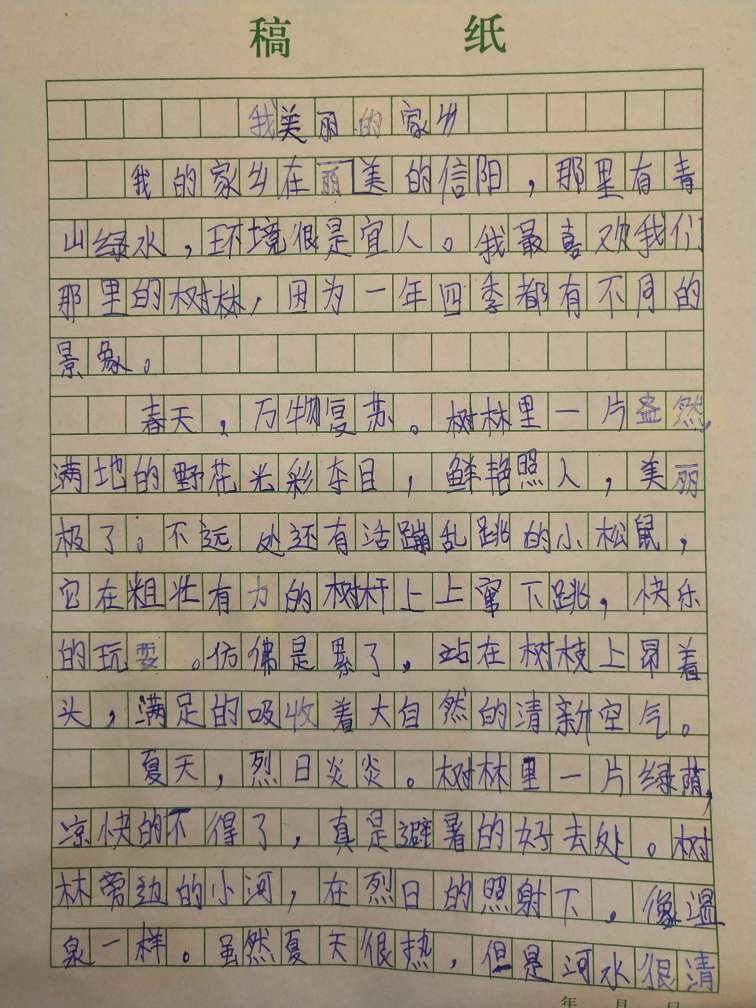 稿 纸
我美丽的家乡
我的家乡在丽美的信阳，那里有青
山绿水，环境很是宜人。我最喜欢我们
那里的树林，因为一年四季都有不同的
景象。
春天，万物复苏。树林里一片盎然，
满地的野花光彩夺目，鲜艳照人，美丽
极了。不远处还有活蹦乱跳的小松鼠，
它在粗壮有力的树杆上上窜下跳，快乐
的玩耍。仿佛是累了，站在树枝上昂着
头，满足的吸收着大自然的清新空气。
夏天，烈日炎炎。树林里一片绿荫，
凉快的不得了，真是避暑的好去处。树
林旁边的小河，在烈日的照射下，像温
泉一样。虽然夏天很热，但是河水很清
年 月 日